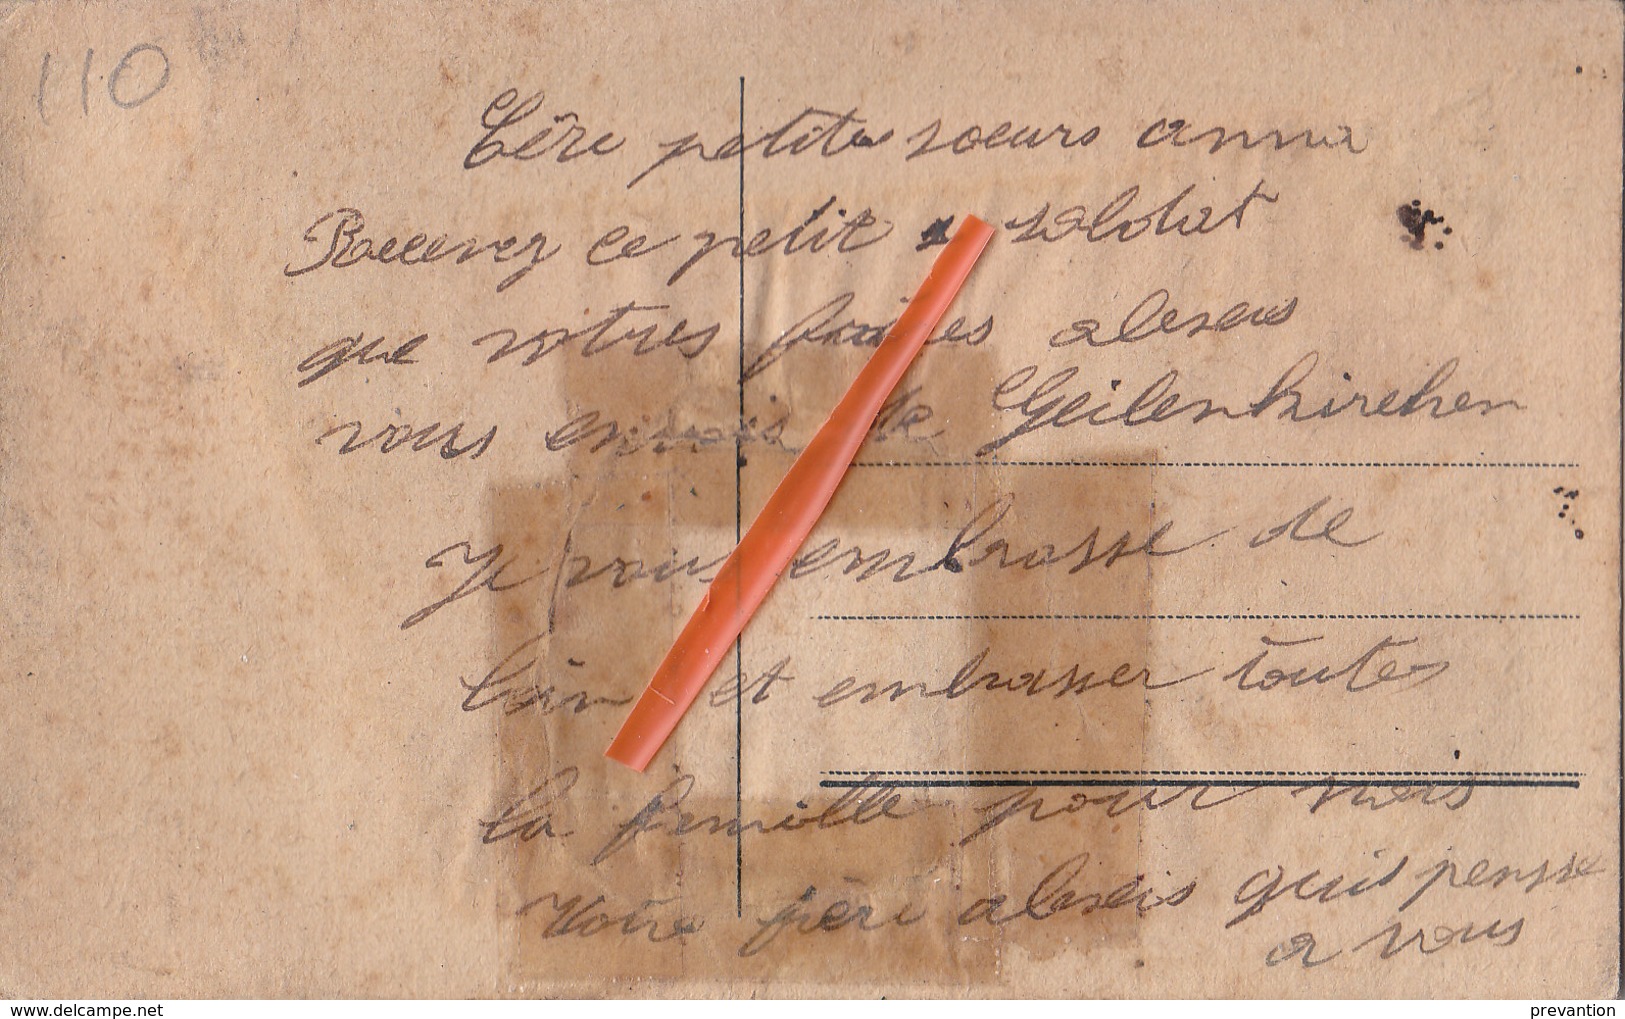 110
Cêre petites soeurs anna
Recevez ce petit soldat
que votres frères alexeis
vous envois de Geilenkirchen
Je vous embrasse de
loin et embrasser toutes
la famille pour mois
Votre père alexeis quis pensse
a vous
prevantion